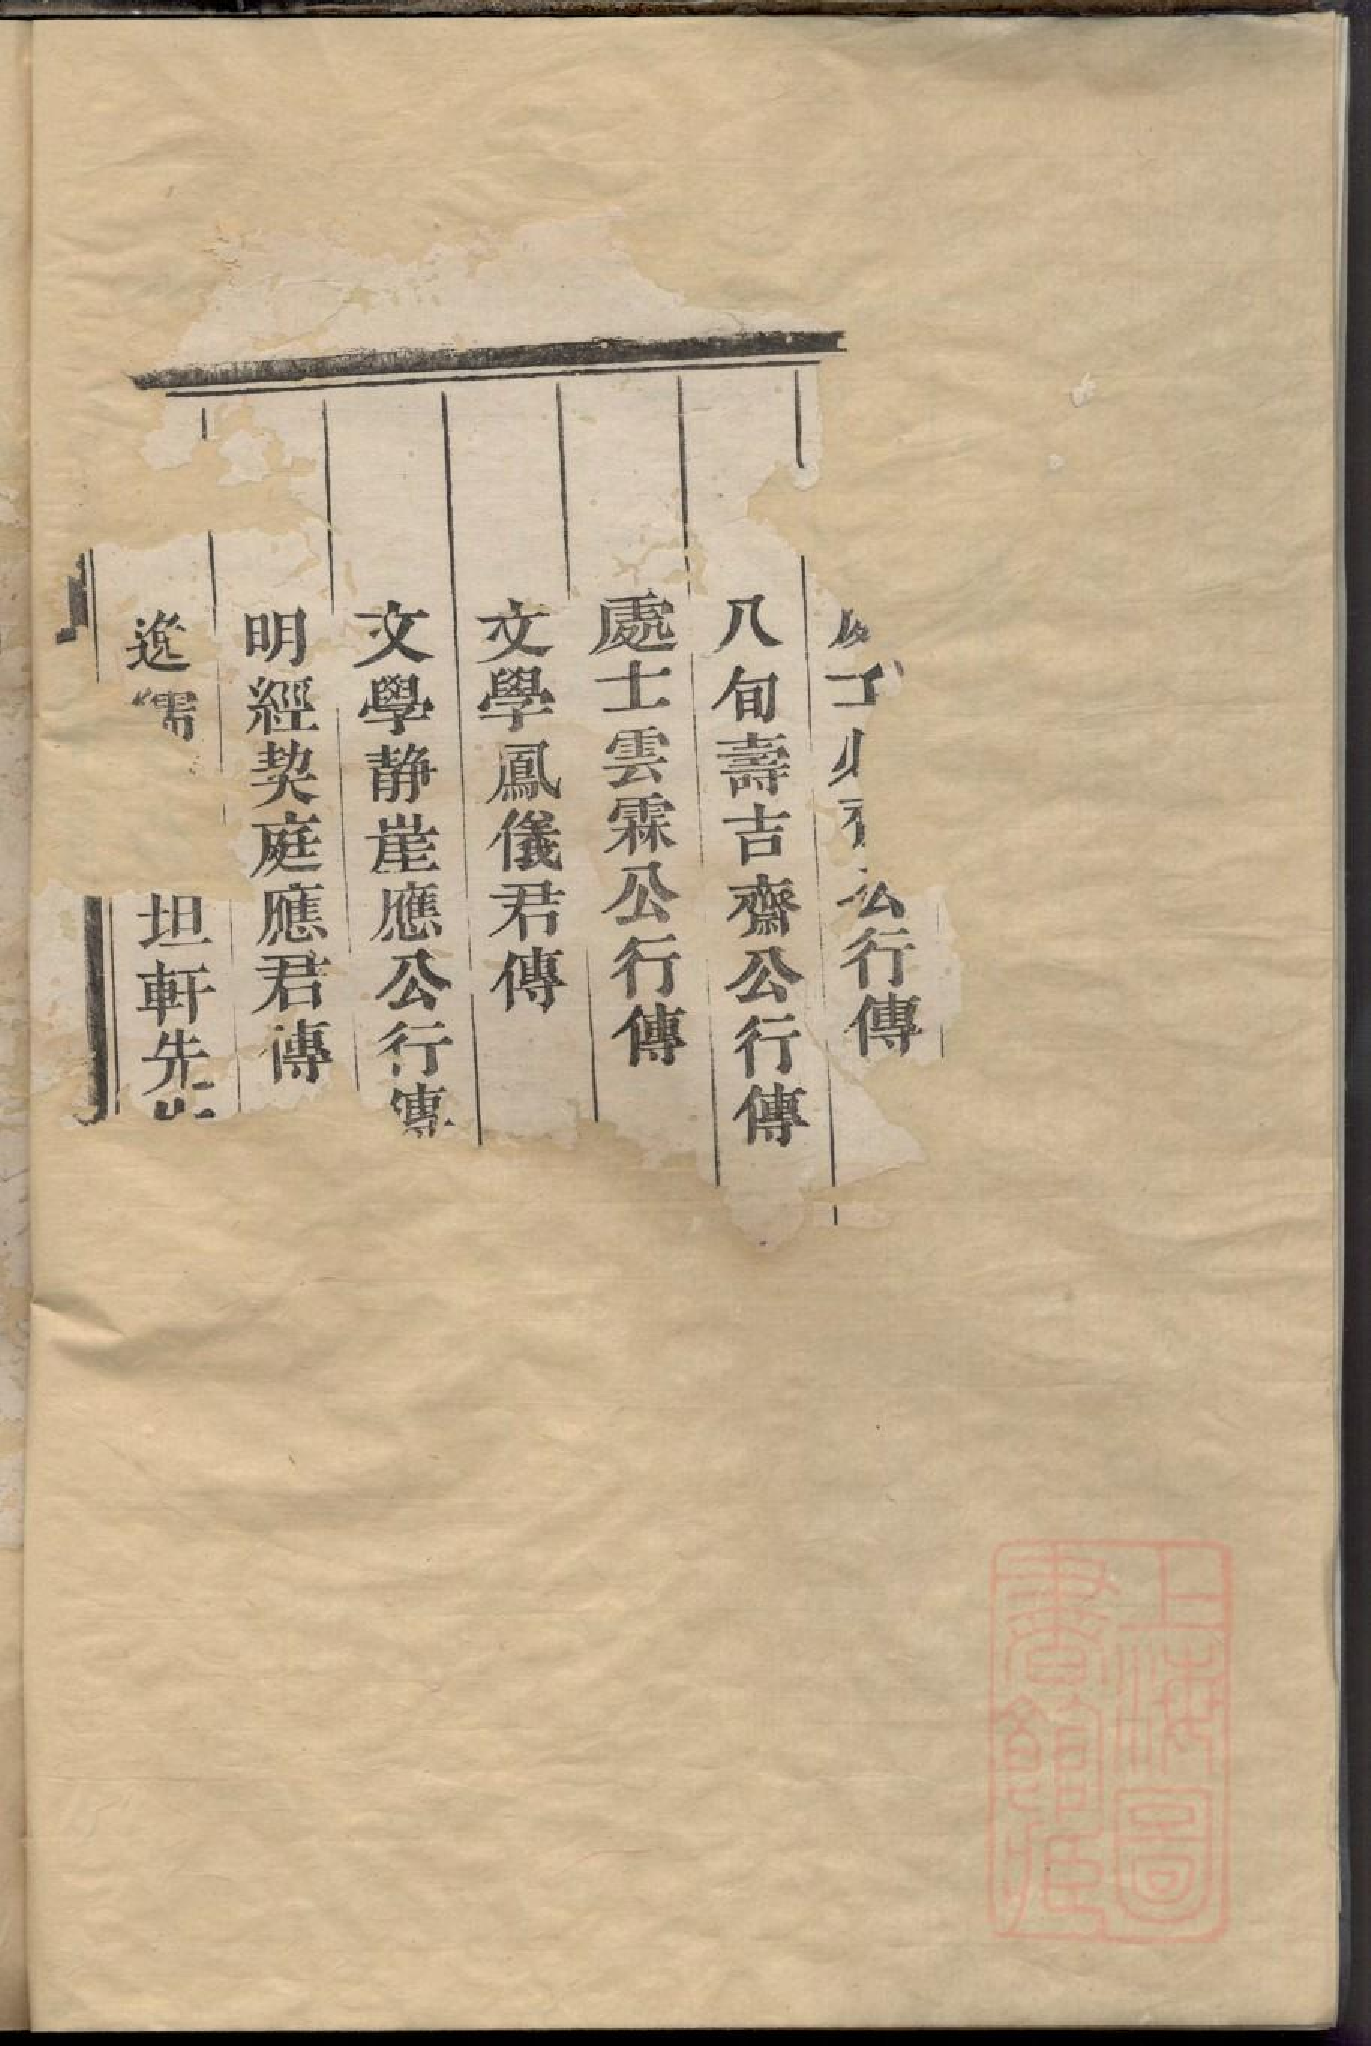 公行傳
八旬壽吉齋公行傳
處士雲霖公行傳
文學鳳儀君傳
文學静崖應公行傳
明經契庭應君傳
逸儒坦軒先
上海圖書館藏